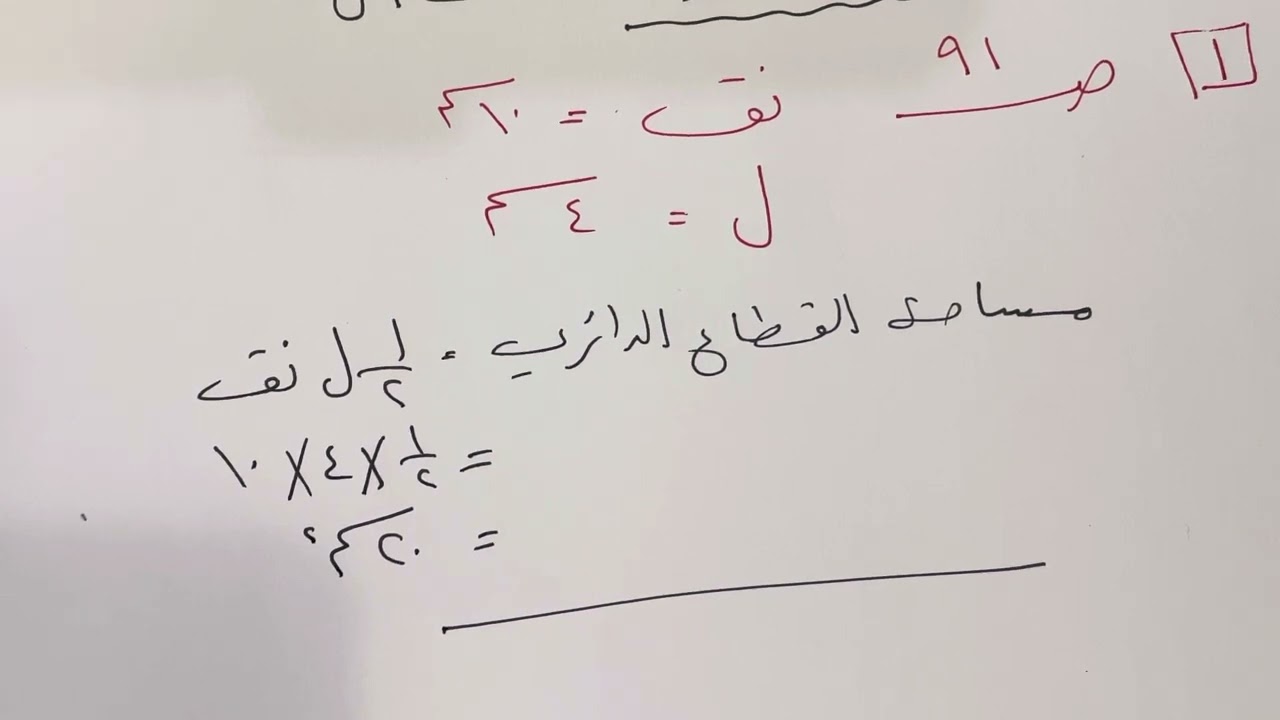 ١ ص ٩١ نق = ١٠ سم
ل = ٤ سم
مساحة القطاع الدائري = ١/٢ ل نق
= ١/٢ × ٤ × ١٠
= ٢٠ سم٢